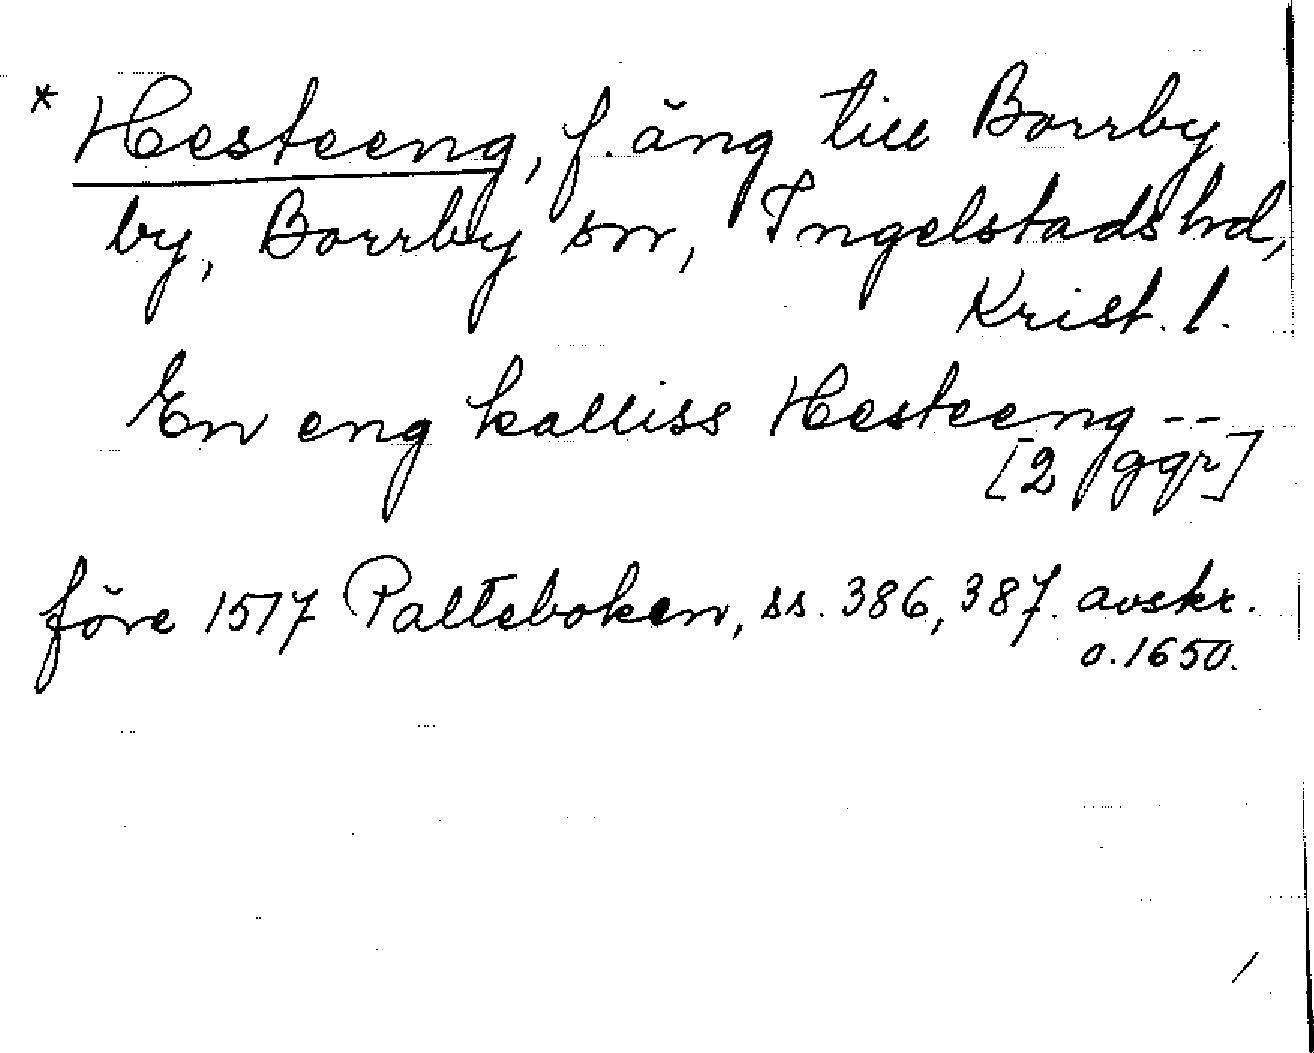 * Hesteeng, f. äng till Borrby
by, Borrby sn, Ingelstads hd,
Krist. l.
En eng kalliss Hesteeng --
[2 ggr]
före 1517 Palteboken, ss. 386, 387. avskr.
o. 1650.